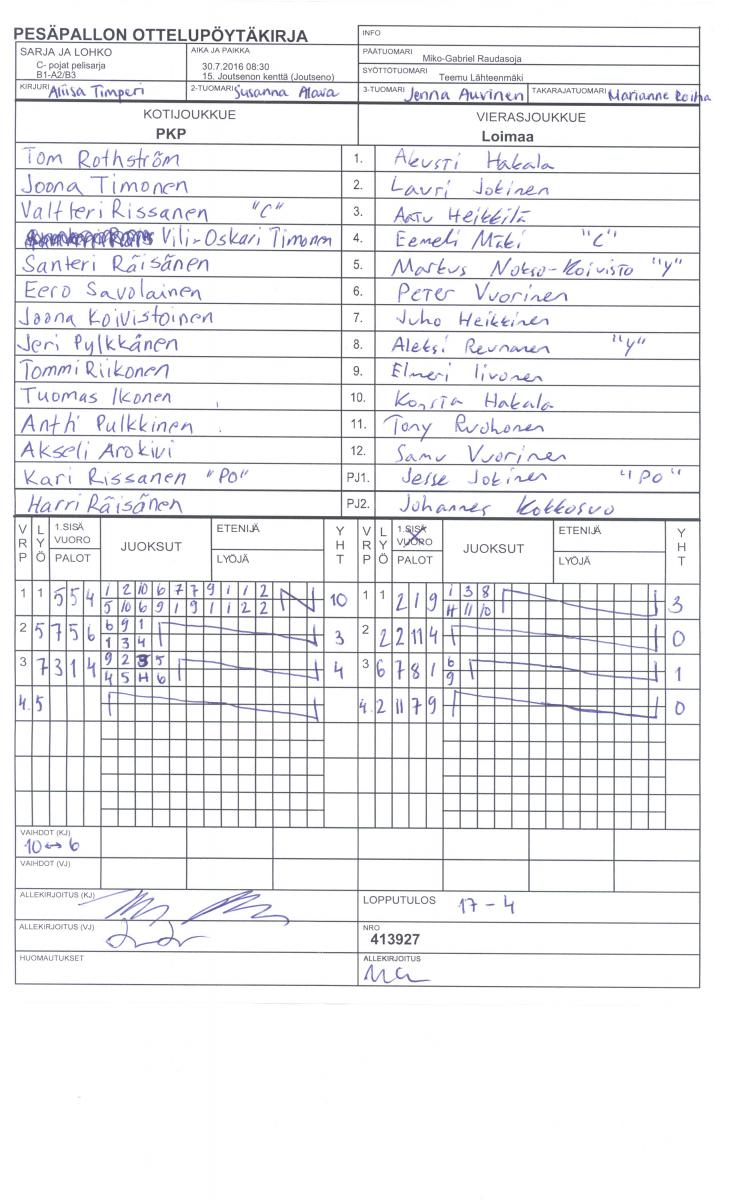 PESÄPALLON OTTELUPÖYTÄKIRJA
INFO
SARJA JA LOHKO
C- pojat pelisarja
B1-A2/B3
AIKA JA PAIKKA
30.7.2016 08:30
15. Joutsenon kenttä (Joutseno)
PÄÄTUOMARI Miko-Gabriel Raudasoja
SYÖTTÖTUOMARI Teemu Lähteenmäki
KIRJURI Aliisa Timperi 2-TUOMARI Susanna Alava 3-TUOMARI Jenna Auvinen TAKARAJATUOMARI Marianne Roiha
KOTIJOUKKUE VIERASJOUKKUE
PKP Loimaa
Tom Rothström 1. Akusti Hakala
Joona Timonen 2. Lauri Jokinen
Valtteri Rissanen "C" 3. Aatu Heikkilä
Vili-Oskari Timonen 4. Eemeli Mäki "C"
Santeri Räisänen 5. Markus Nokso-Koivisto "Y"
Eero Savolainen 6. Peter Vuorinen
Joona Koivistoinen 7. Juho Heikkinen
Jeri Pylkkänen 8. Aleksi Reunanen "Y"
Tommi Riikonen 9. Elmeri Iivonen
Tuomas Ikonen 10. Konsta Hakala
Antti Pulkkinen 11. Tony Ruohonen
Akseli Arokivi 12. Samu Vuorinen
Kari Rissanen "PO" PJ1. Jesse Jokinen "PO"
Harri Räisänen PJ2. Johannes Kokkosuo
VRP LYÖ 1.SISÄ VUORO PALOT JUOKSUT ETENIJÄ LYÖJÄ YHT VRP LYÖ 1.SISÄ VUORO PALOT JUOKSUT ETENIJÄ LYÖJÄ YHT
1 1 5 5 4 1 2 10 6 7 7 9 1 1 2 10 1 1 2 1 9 1 3 8 3
5 10 6 9 1 9 1 1 2 2 H 11 10
2 5 7 5 6 6 9 1 3 2 2 2 11 4 0
1 3 4
3 7 3 1 4 9 2 5 4 3 6 7 8 1 6 1
4 5 H 6 9
4. 5 4. 2 11 7 9 0
VAIHDOT (KJ)
10↔6
VAIHDOT (VJ)
ALLEKIRJOITUS (KJ)
LOPPUTULOS 17-4
ALLEKIRJOITUS (VJ)
NRO
413927
HUOMAUTUKSET
ALLEKIRJOITUS